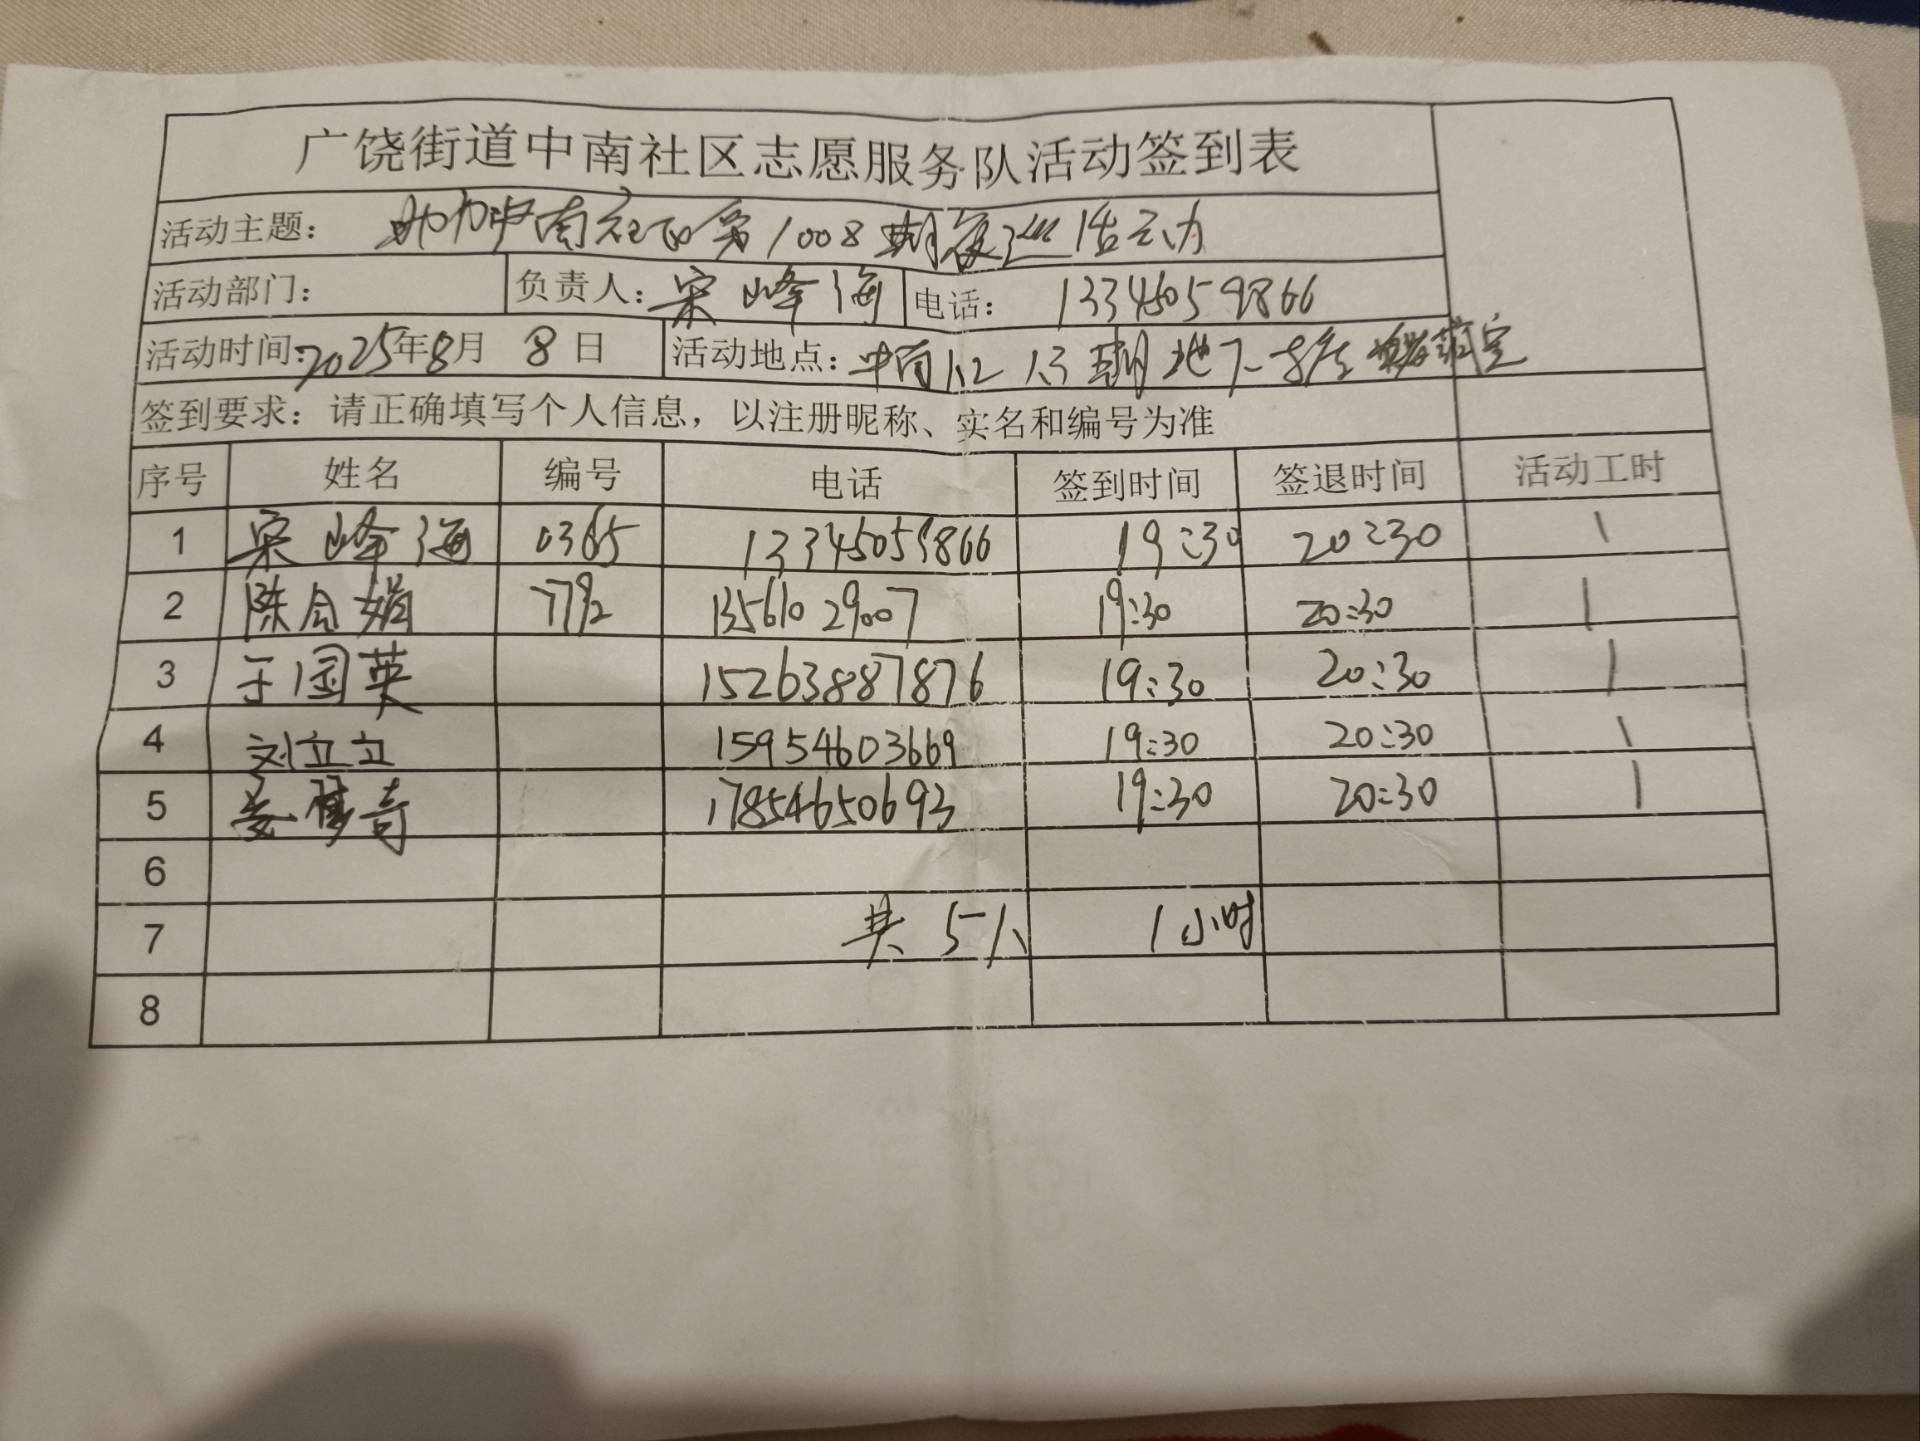 广饶街道中南社区志愿服务队活动签到表
活动主题： 助力中南社区第1008期夜巡活动
活动部门： 负责人：宋峰海 电话：13345059866
活动时间：2025年8月8日 活动地点：中南1.2 1.3期地下
签到要求：请正确填写个人信息，以注册昵称、实名和编号为准
序号 姓名 编号 电话 签到时间 签退时间 活动工时
1 宋峰海 0365 13345059866 19:30 20:30 1
2 陈会娟 7792 13561029007 19:30 20:30 1
3 于国英 15263887876 19:30 20:30 1
4 刘立立 15954603669 19:30 20:30 1
5 奇 17854650693 19:30 20:30 1
6
7 共5人 1小时
8